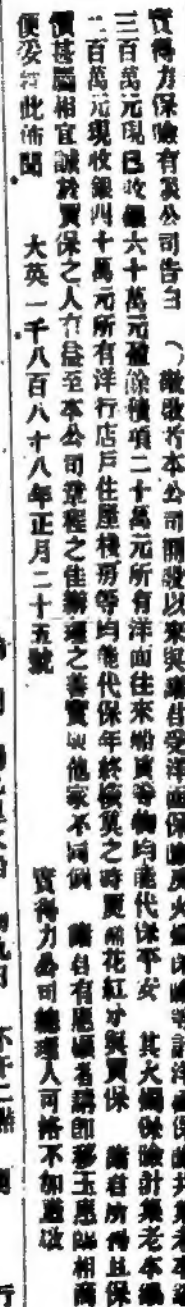 寶得力保險有限公司告白 啟者本公司開設以來與諸君受洋面保險及火燭保險計洋面保險共集老本銀
三百萬元現已收銀六十萬元積餘積項二十萬元所有洋面往來船貨等物均能代保平安 其火燭保險計集老本銀
二百萬元現收銀四十萬元所有洋行店戶住屋棧房等均能代保年終核算之時更將花紅分與買保 諸君所得且保
價甚屬相宜誠於買保之人有益至本公司章程之佳辦理之善實與他家不同倘 諸君有惠顧者請即移玉惠臨相商
便妥特此佈聞 大英一千八百八十八年正月二十五號 寶得力公司總理人可 不加 啟